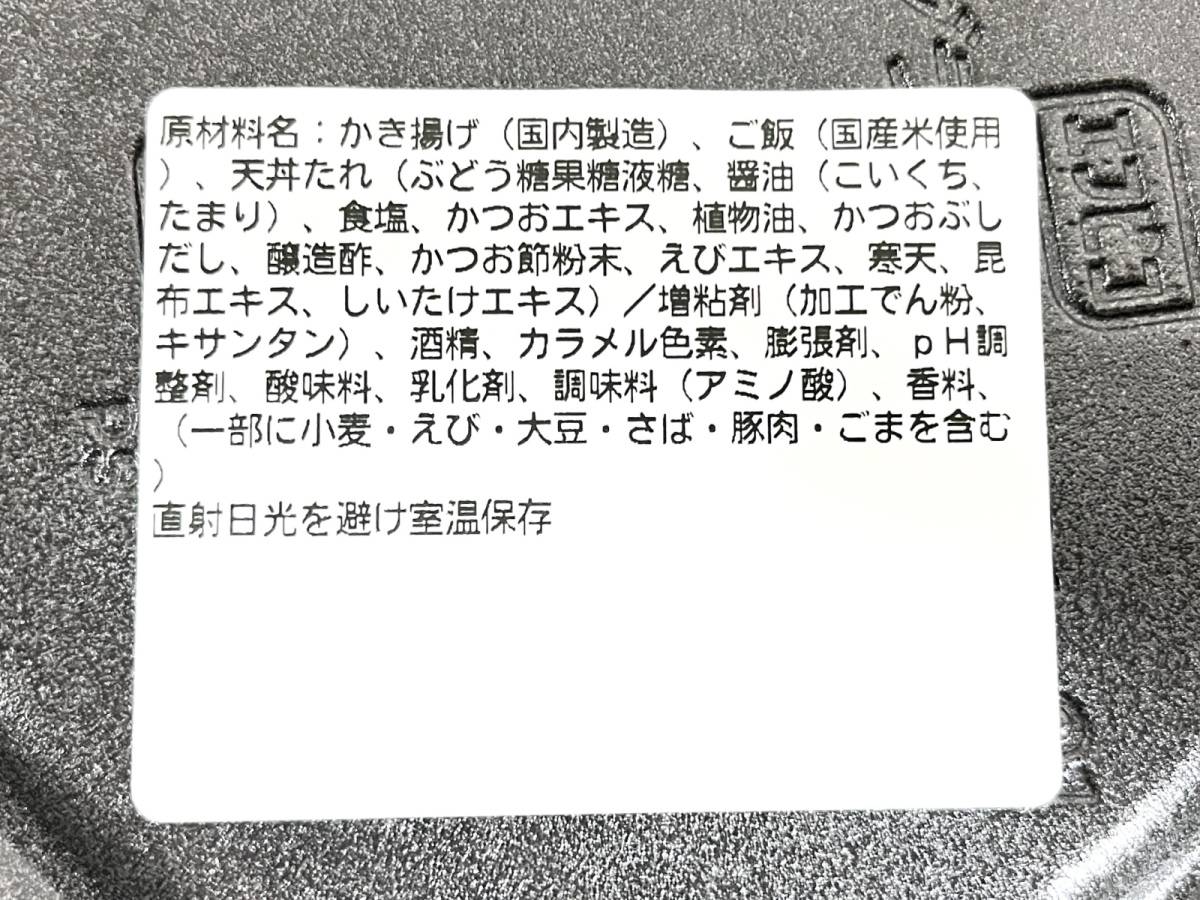 原材料名：かき揚げ（国内製造）、ご飯（国産米使用
）、天丼たれ（ぶどう糖果糖液糖、醤油（こいくち、
たまり）、食塩、かつおエキス、植物油、かつおぶし
だし、醸造酢、かつお節粉末、えびエキス、寒天、昆
布エキス、しいたけエキス）／増粘剤（加工でん粉、
キサンタン）、酒精、カラメル色素、膨張剤、ｐＨ調
整剤、酸味料、乳化剤、調味料（アミノ酸）、香料、
（一部に小麦・えび・大豆・さば・豚肉・ごまを含む
）
直射日光を避け室温保存